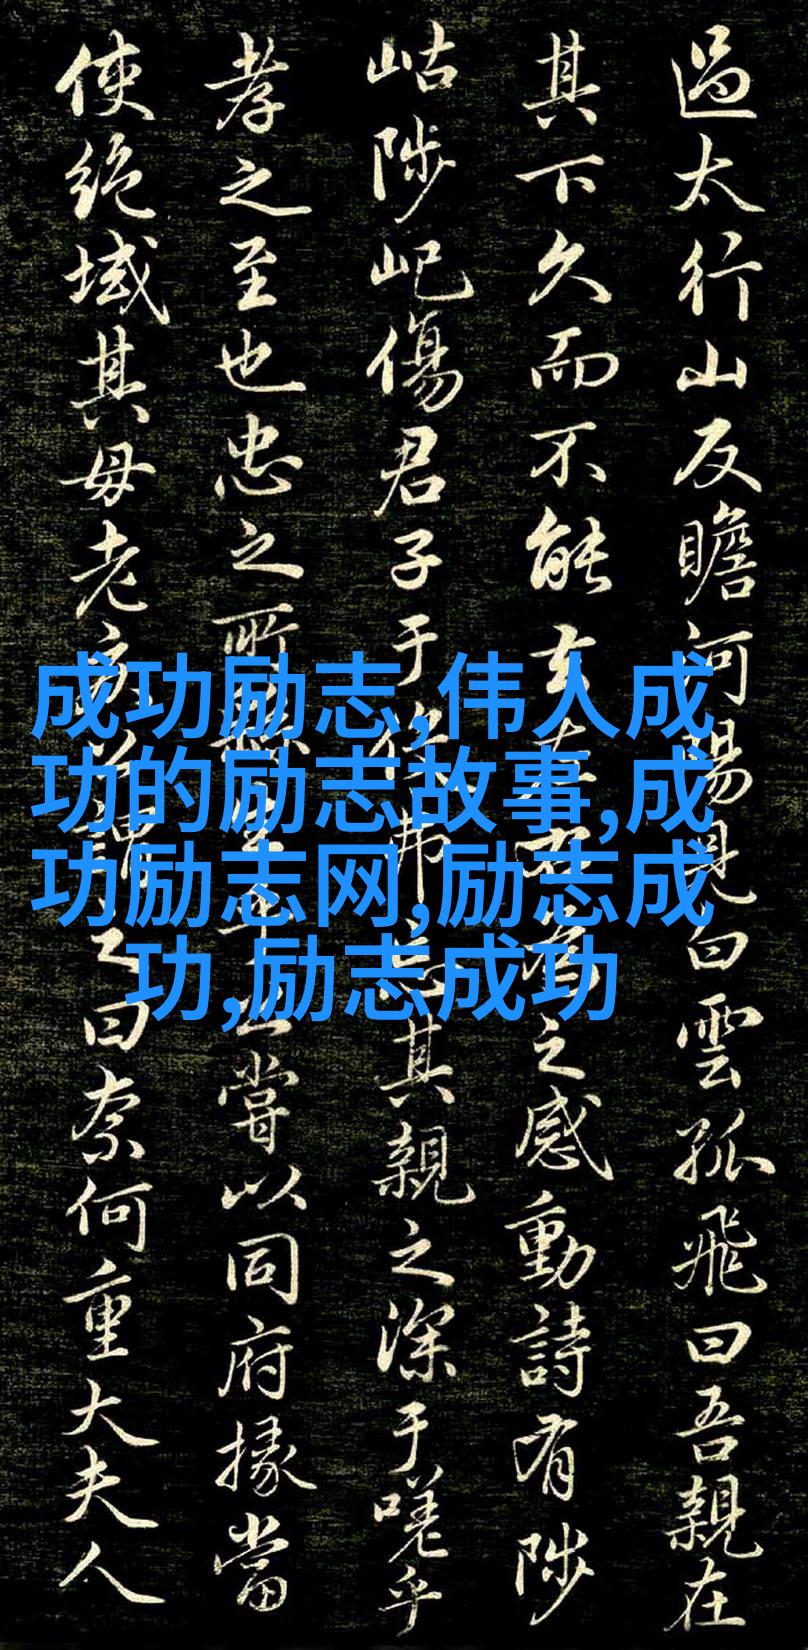 過太行山反瞻河陽見白雲孤飛曰吾親在
其下久而不能去左右為之感動詩有陟
岵陟屺傷君子于役弗忘其親之深于嗟乎
孝之至也忠之所生乎公嘗以同府掾當
使絕域其母老疾公謂之曰奈何重大夫人
成功励志,伟人成
功的励志故事,成
功励志网,励志成
功,励志成功